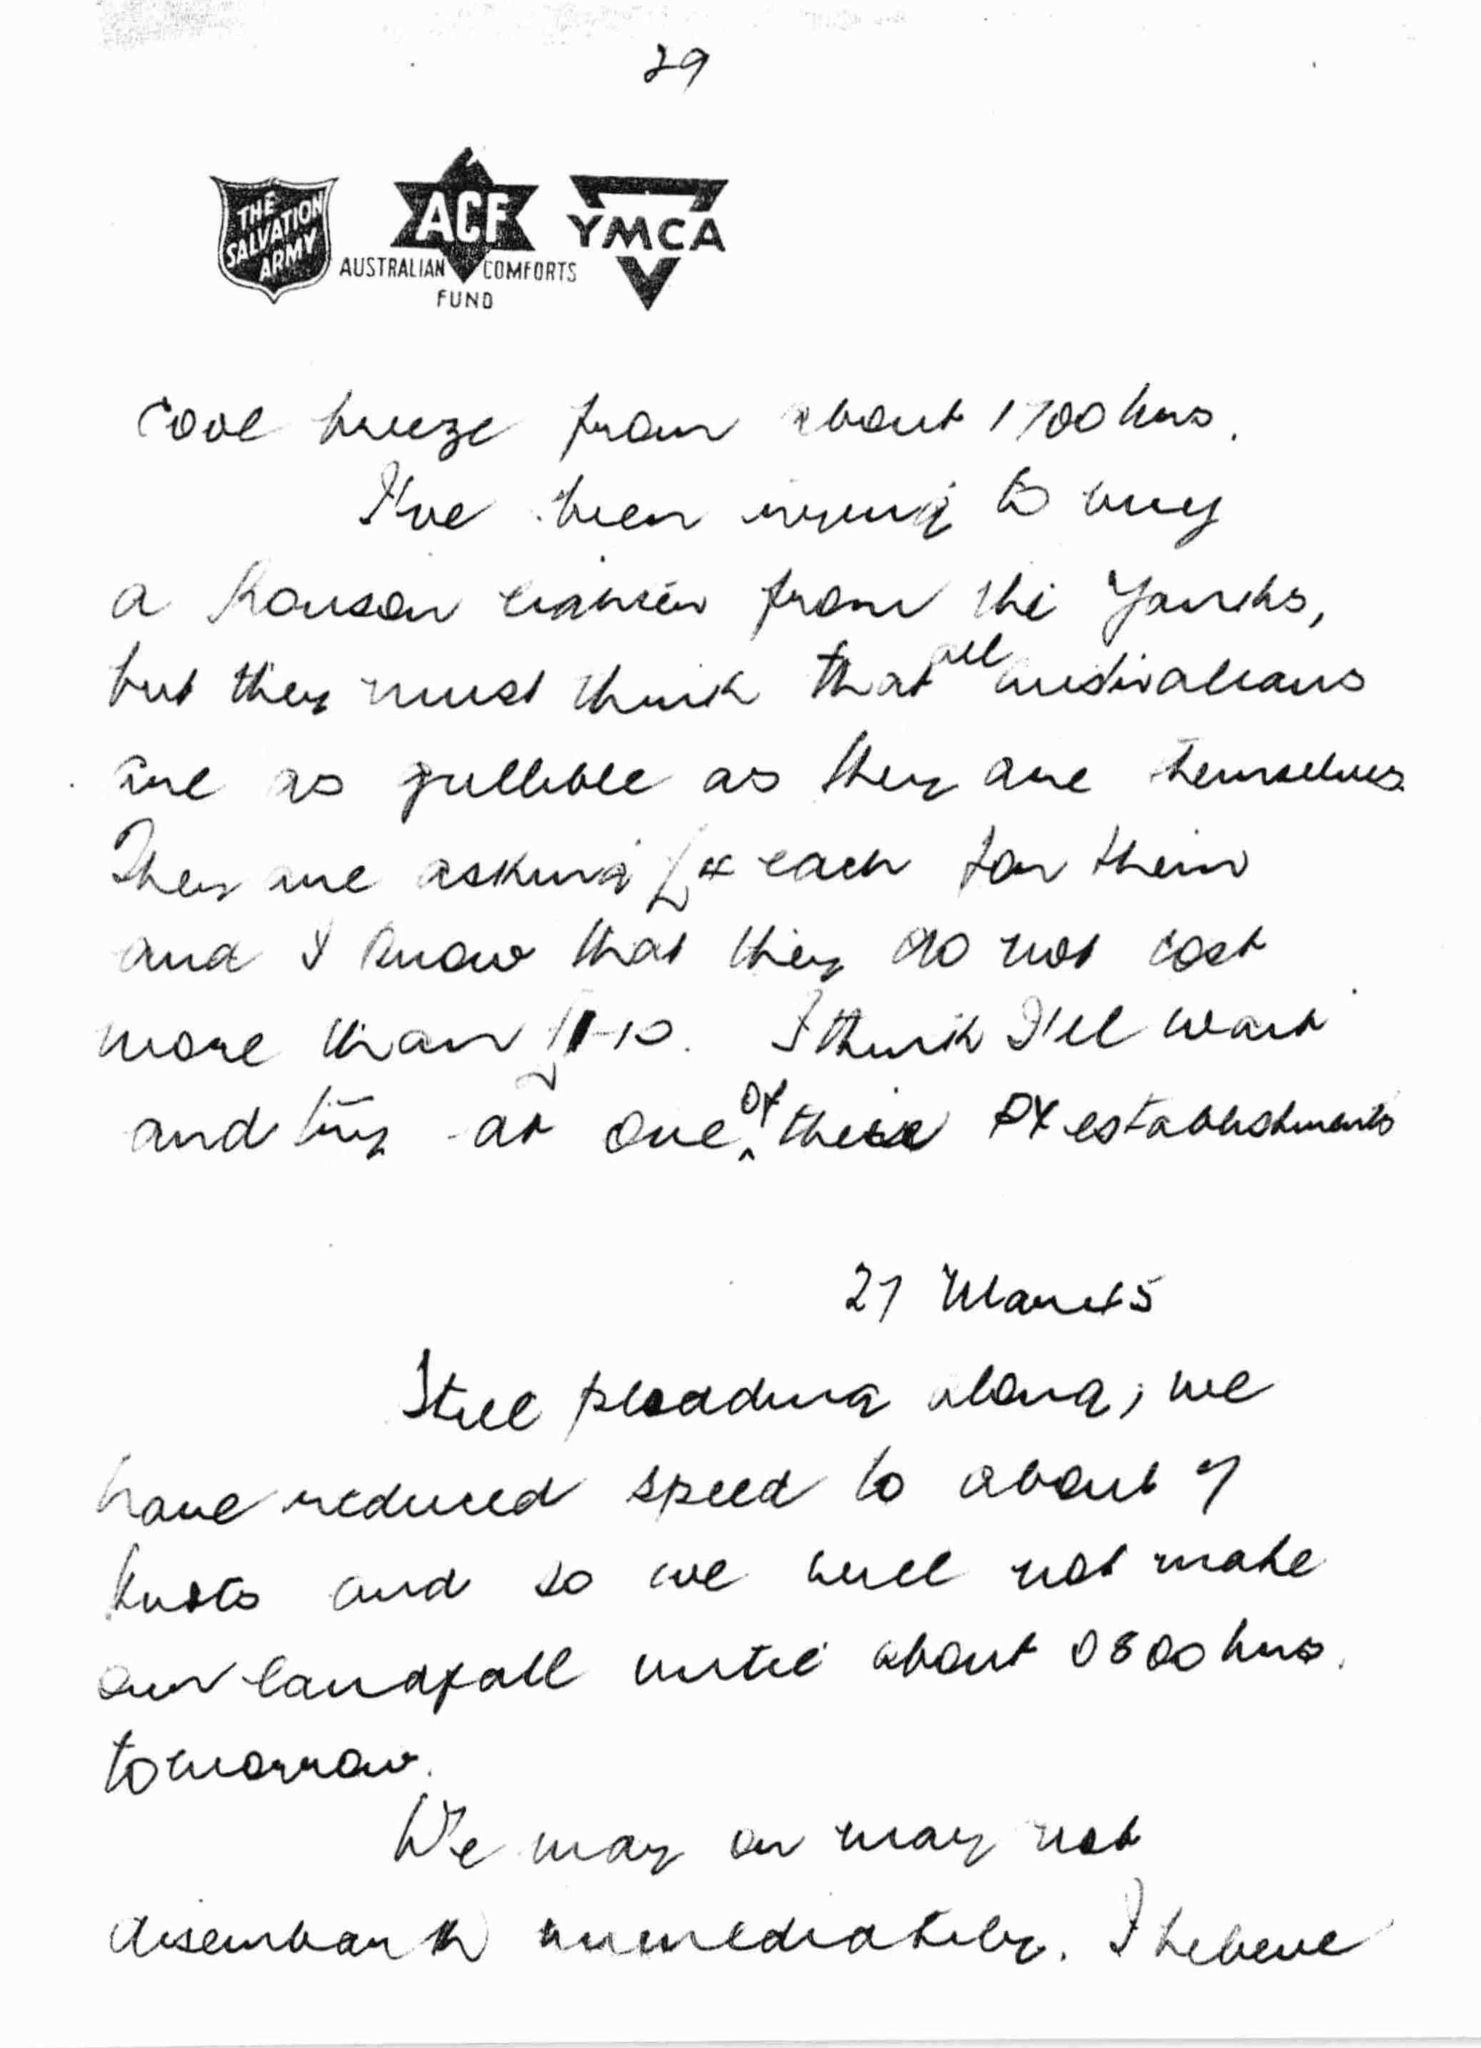 29
THE
SALVATION
ARMY
ACF
AUSTRALIAN COMFORTS
FUND
YMCA
cool breeze from about 1700 hrs.
I've been trying to buy
a Ronson lighter from the Yanks,
but they must think that all Australians
are as gullible as they are themselves.
They are asking £ each for them
and I know that they do not cost
more than £1-10. I think I'll wait
and try at one of these PX establishments
27 March 45
Still plodding along; we
have reduced speed to about 7
knots and so we will not make
our landfall until about 0800 hrs.
tomorrow.
We may or may not
disembark immediately. I believe